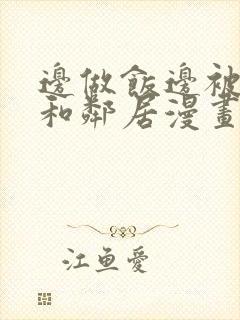 邊做飯邊被
和鄰居漫畫
江魚愛